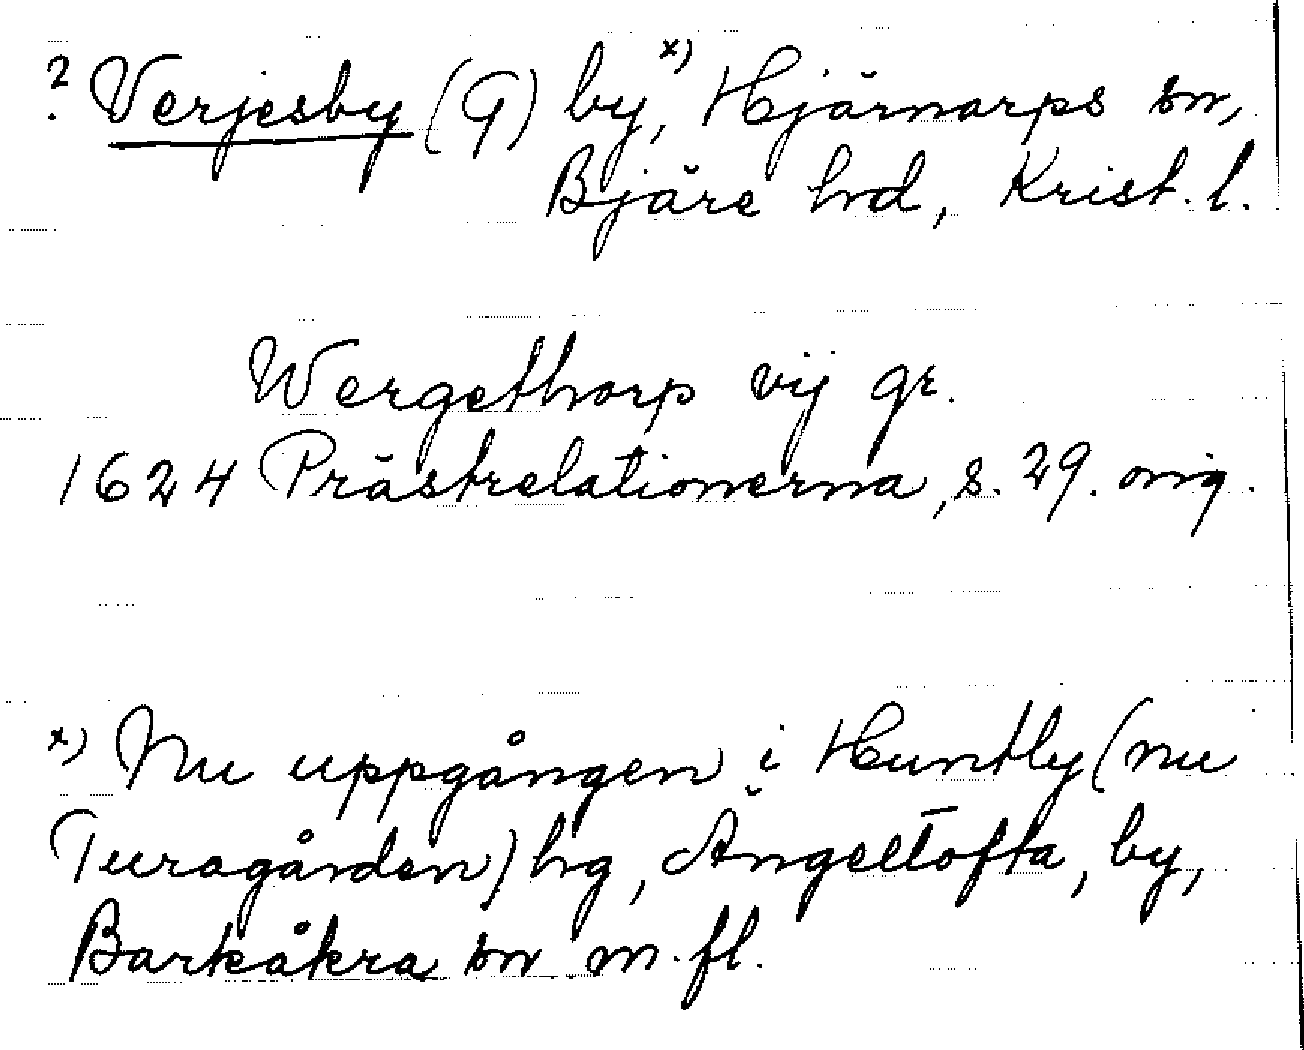 ? Verjesby (G) by,x) Hjärnarps sn,
Bjäre hd, Krist. l.
Wergethorp vij gr.
1624 Prästrelationerna, s. 29. orig.
x) Nu uppgången i Huntly (nu
Turagården) hg, Ängeltofta, by,
Barkåkra sn m. fl.